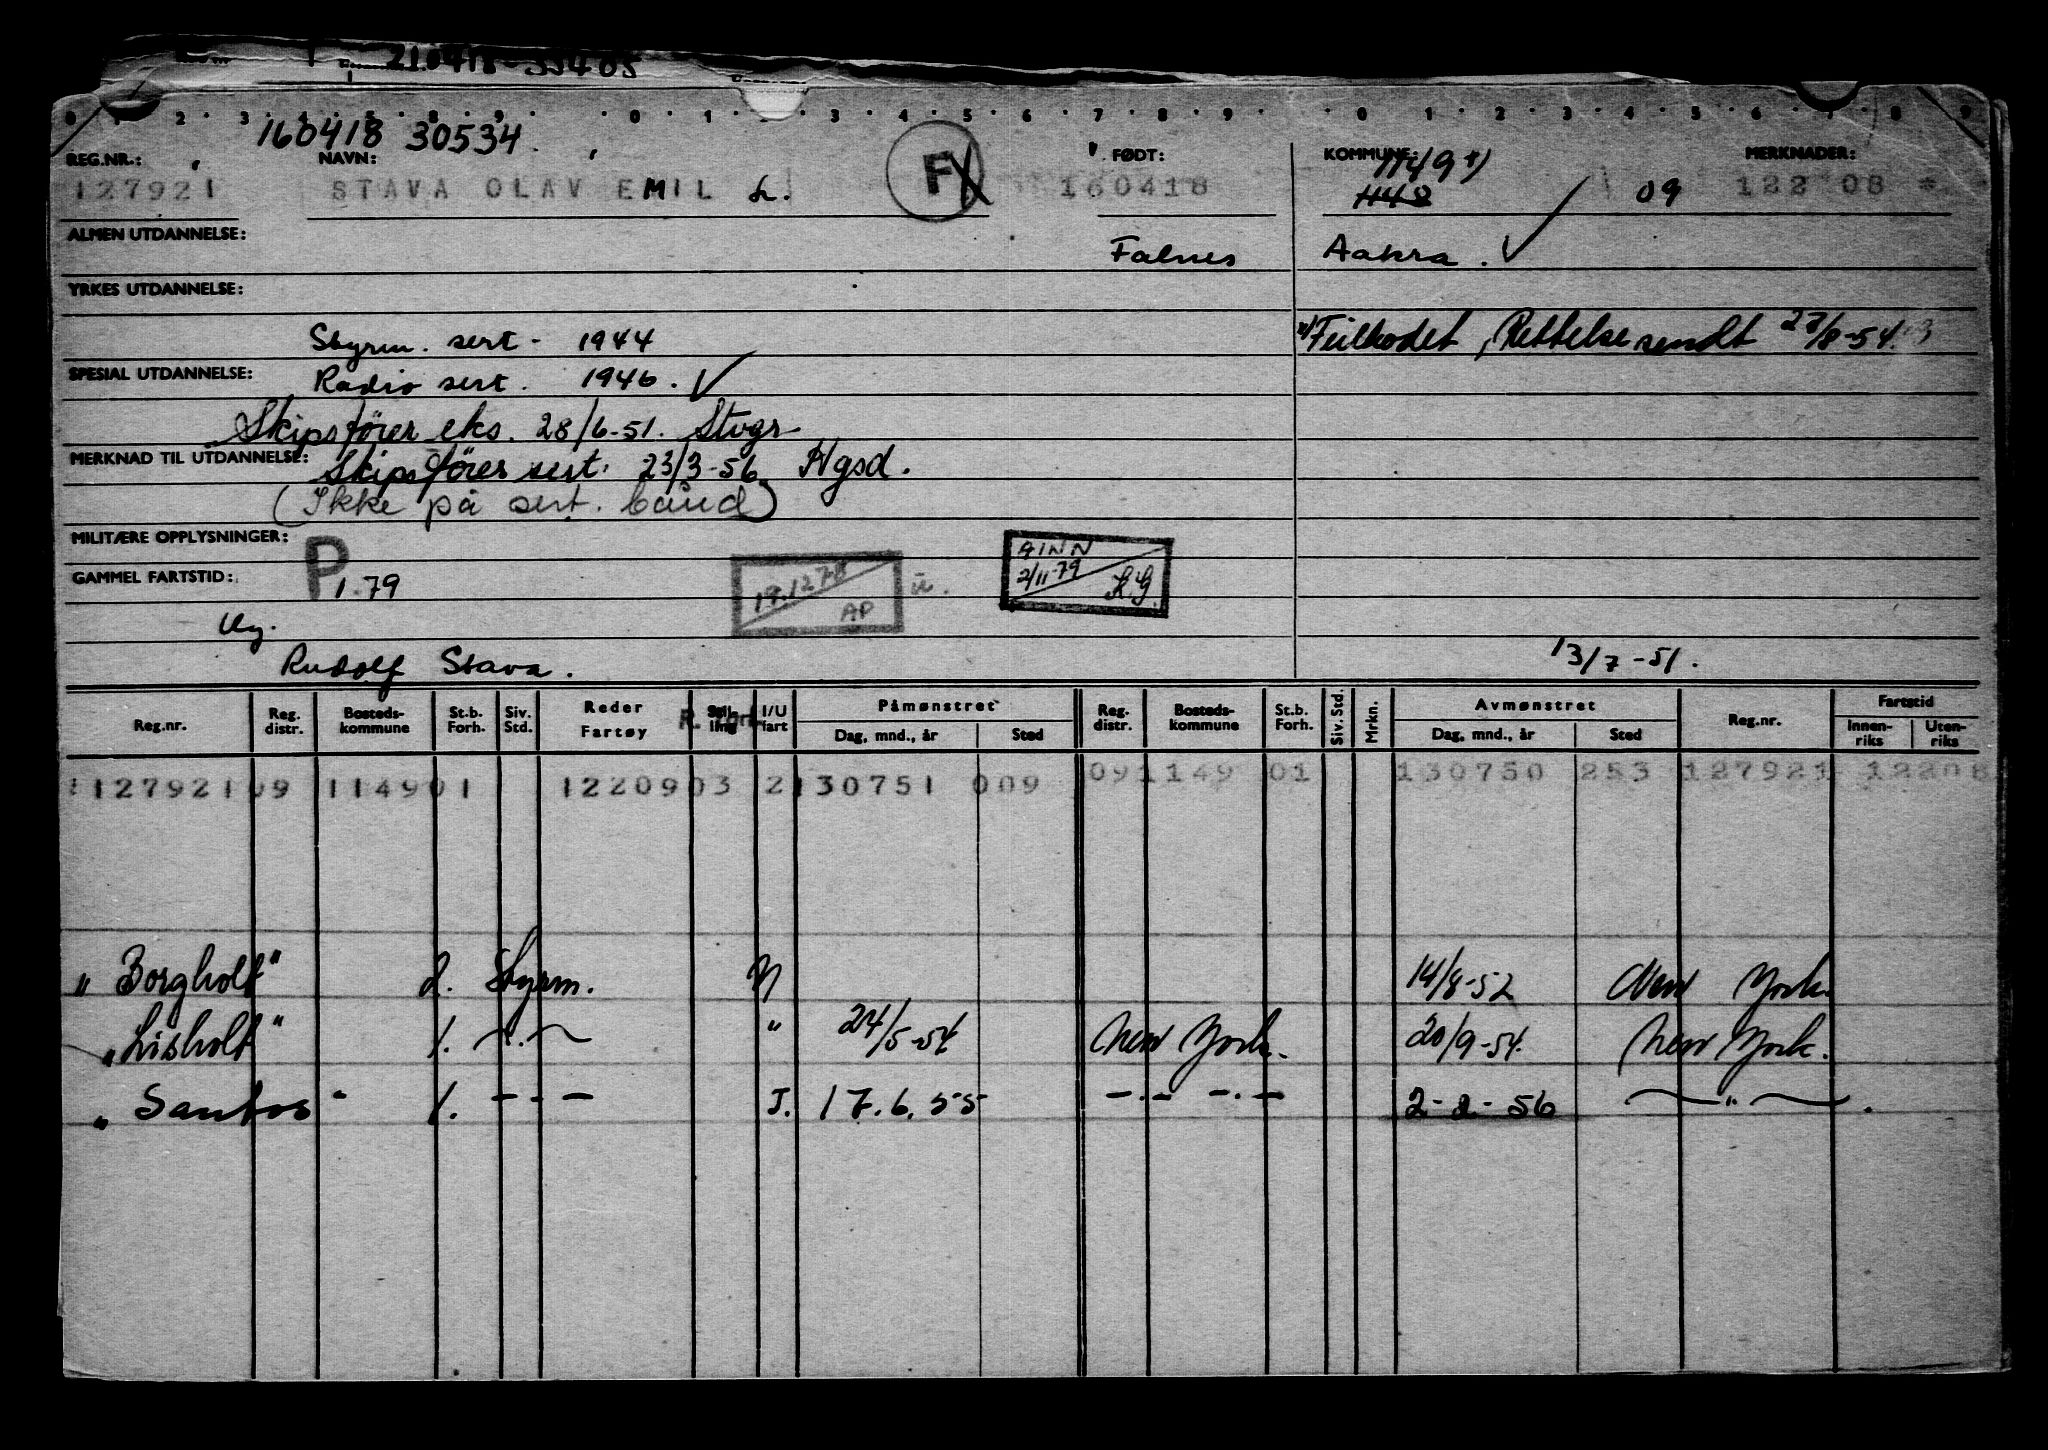 210418 33405
0 1 2 3 4 5 6 7 8 9 0 1 2 3 4 5 6 7 8 9 0 1 2 3 4 5 6 7 8 9
160418 30534
REG.NR.: NAVN: FØDT: KOMMUNE: 1149 x) MERKNADER:
127921 STAVA OLAV EMIL L. F 160418 1148 09 122 08 *
ALMEN UTDANNELSE: Falnes Aakra.
YRKES UTDANNELSE:
Styrm. sert - 1944 x) Feilkodet, Rettelse sendt 27/8-54.
SPESIAL UTDANNELSE: Radio sert. 1946.
Skipsfører eks. 28/6-51. Stvgr
MERKNAD TIL UTDANNELSE: Skipsfører sert. 23/3-56 Hgsd.
(Ikke på sert. bånd)
MILITÆRE OPPLYSNINGER: P AINN
GAMMEL FARTSTID: 1.79 19.12.78 AP 2/11-79 K.G.
Ug.
Rudolf Stava. 13/7-51.
Reg.nr. Reg. distr. Bosteds-kommune St.b. Forh. Siv. Std. Reder Fartøy Stilling I/U fart Påmønstret Dag, mnd., år Sted Reg. distr. Bosteds-kommune St.b. Forh. Siv. Std. Mrkn. Avmønstret Dag, mnd., år Sted Reg.nr. Fartstid Innen-riks Uten-riks
127921 09 1149 01 1220903 2 130751 009 09 1149 01 130750 253 127921 12208
"Borgholt" 2. Styrm. U 14/8-52 New York.
"Lisholt" 1. —"— " 24/5-54 New York. 20/9-54. New York.
"Santos" 1. - - - I. 17.6.55 -.- -.- 2-2-56 —"—.